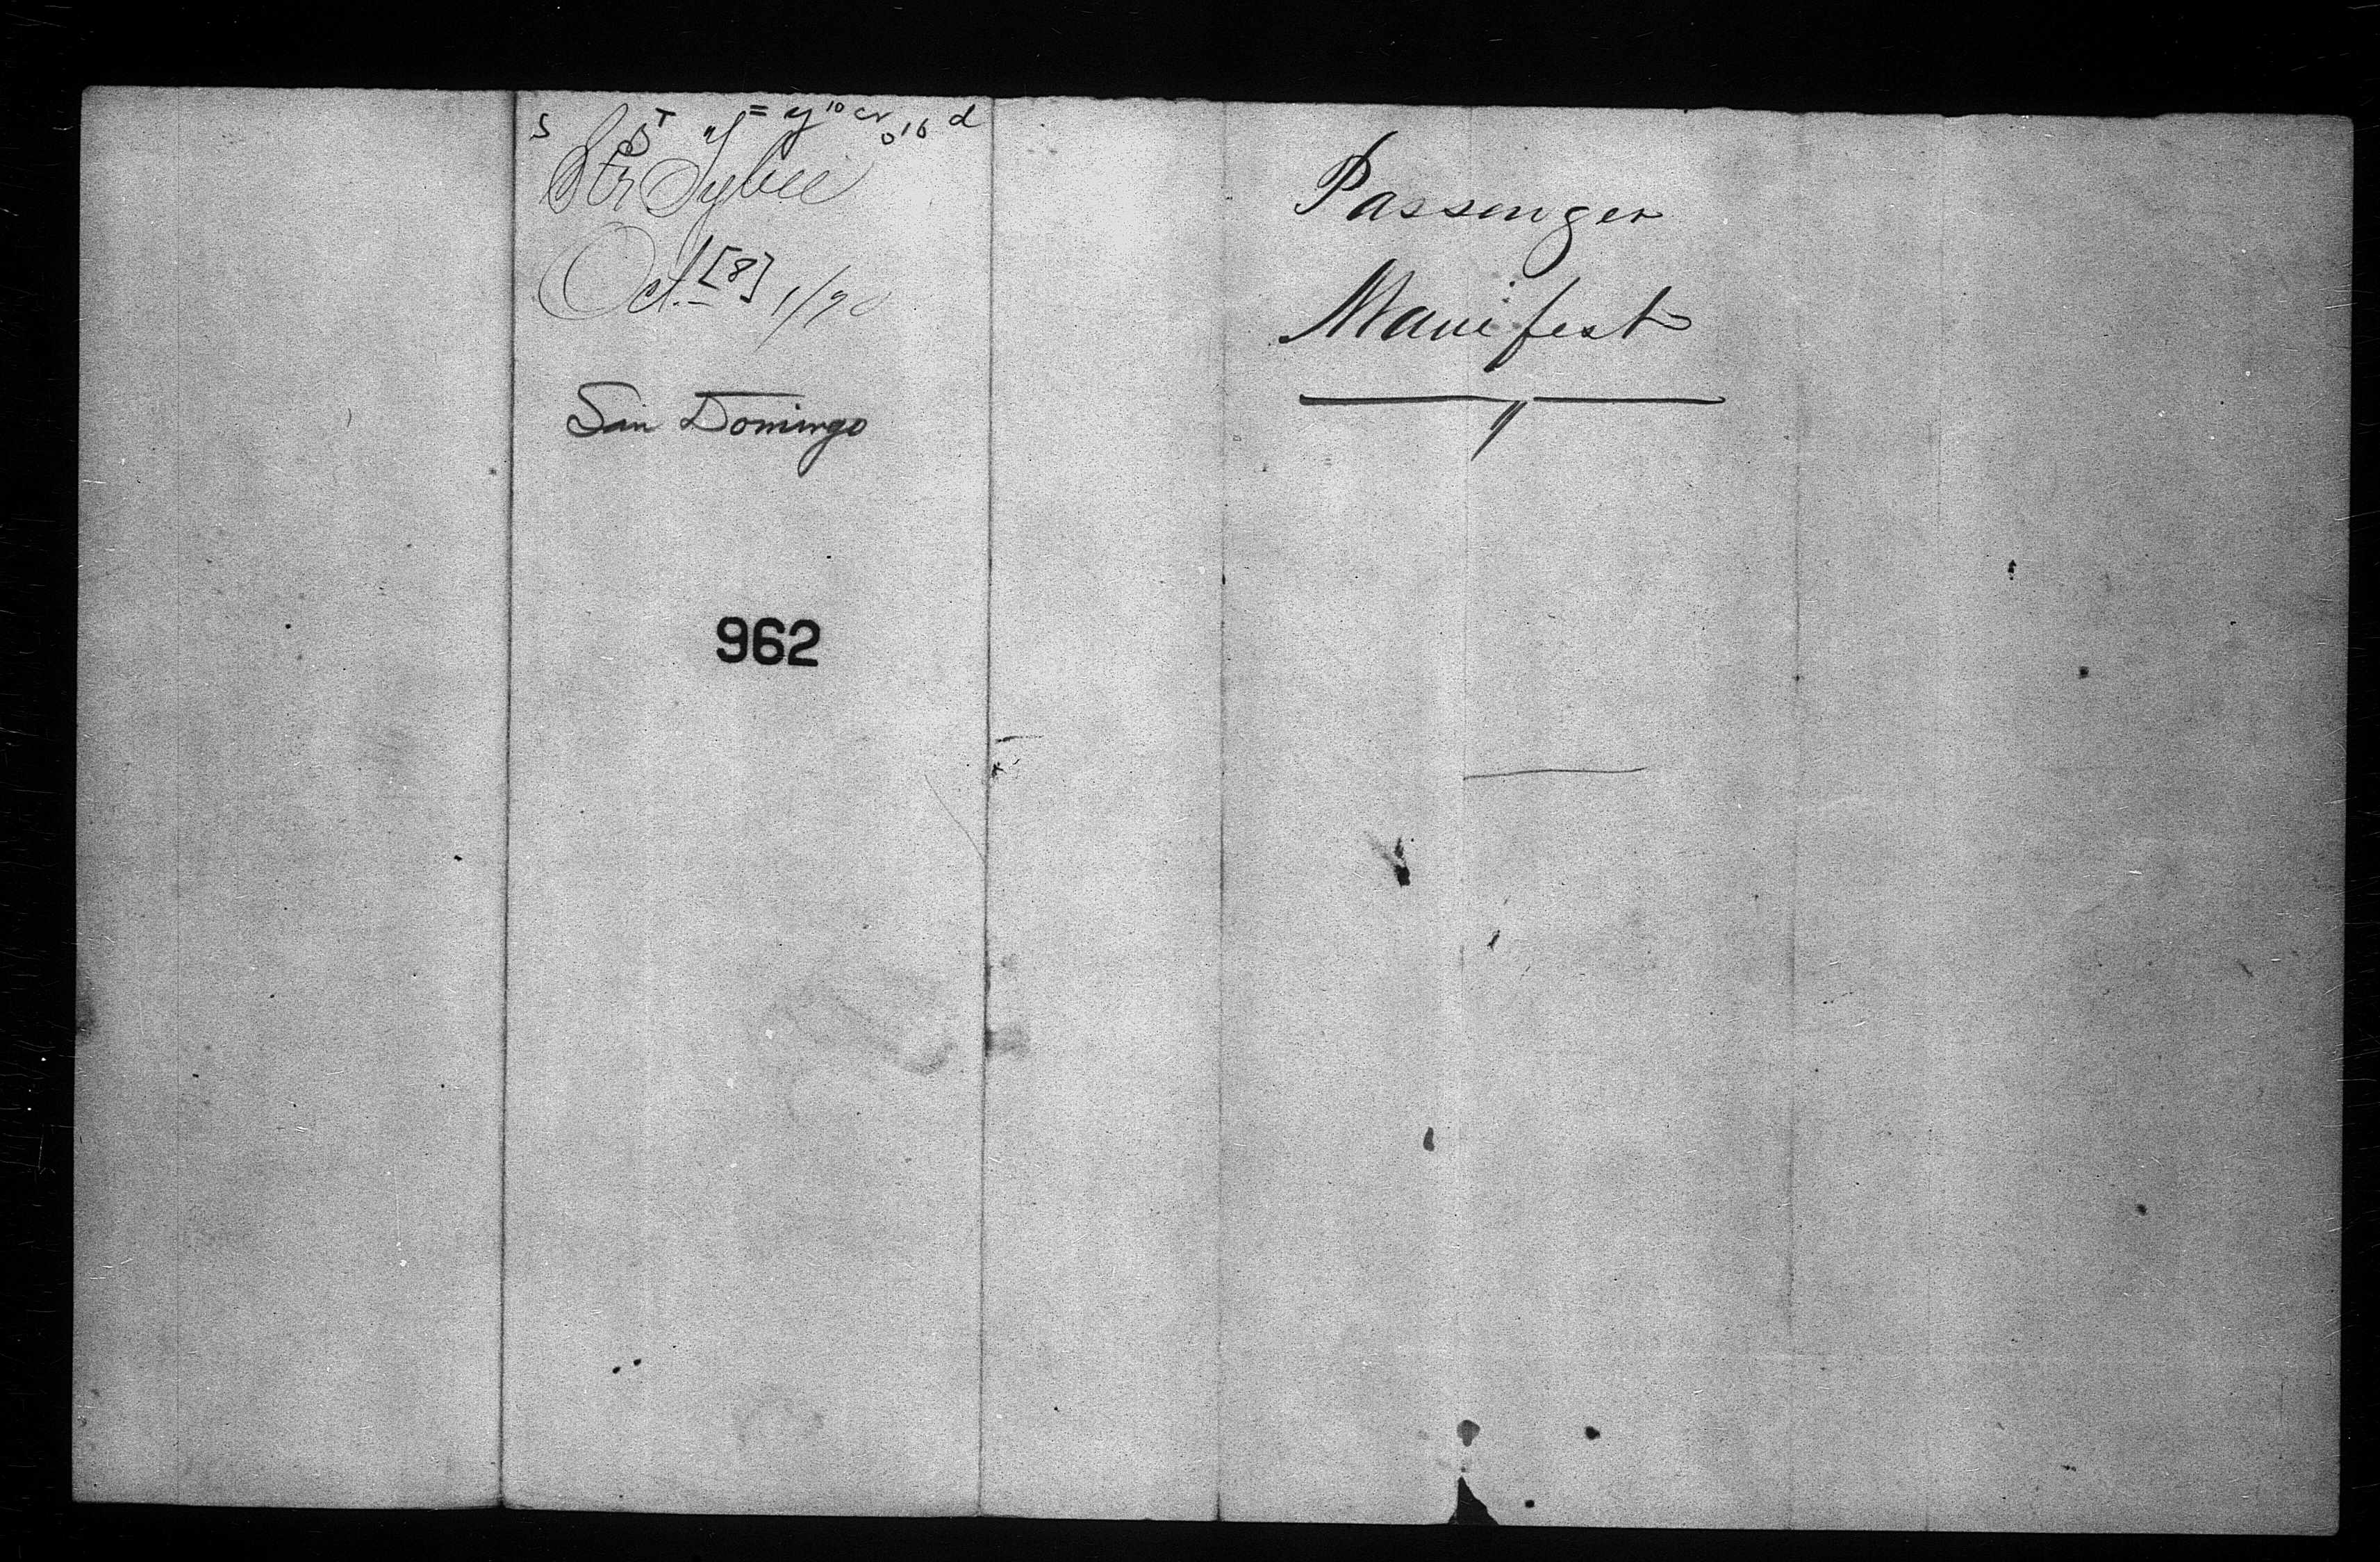 Str Tybee
Oct. [8] 1/70
San Domingo
962
Passenger
Manifest